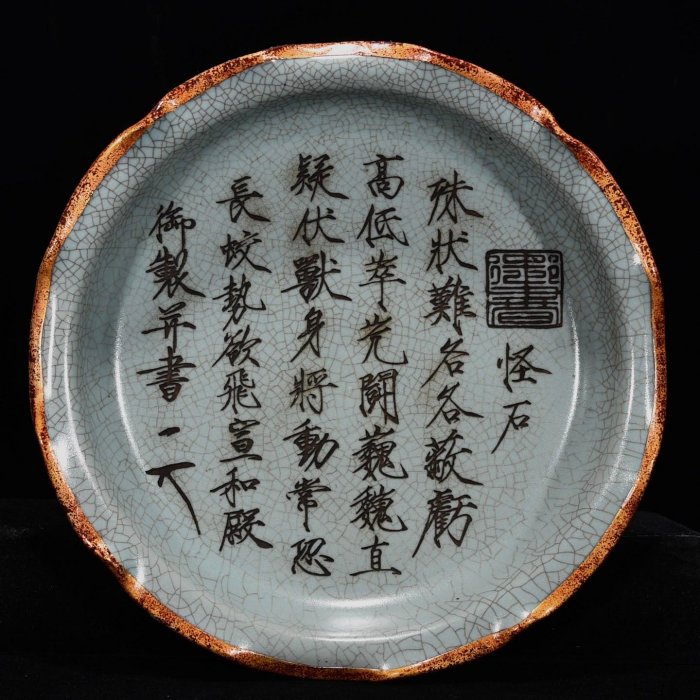 御書
怪石
殊狀難各各蔽虧
高低萃 鬪巍巍直
疑伏獸身將動常恐
長蛟勢欲飛宣和殿
御製并書